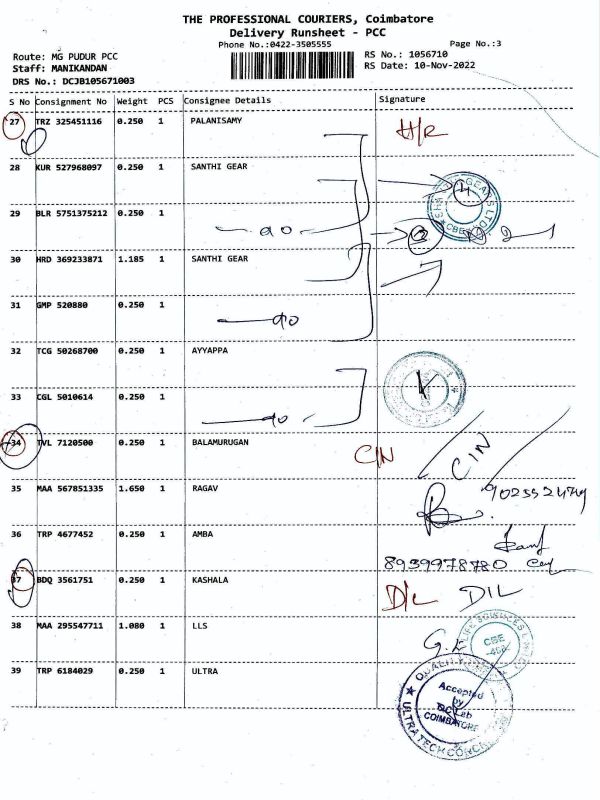 THE PROFESSIONAL COURIERS, Coimbatore
Delivery Runsheet - PCC
Phone No.:0422-3505555
Page No.:3
Route: MG PUDUR PCC
Staff: MANIKANDAN
DRS No.: DCJB105671003
RS No.: 1056710
RS Date: 10-Nov-2022
S No Consignment No Weight PCS Consignee Details Signature
27 TRZ 325451116 0.250 1 PALANISAMY H/R
28 KUR 527968097 0.250 1 SANTHI GEAR
29 BLR 5751375212 0.250 1 -do-
30 HRD 369233871 1.185 1 SANTHI GEAR
31 GMP 520880 0.250 1 -do
32 TCG 50268700 0.250 1 AYYAPPA
33 CGL 5010614 0.250 1 -do-
34 TVL 7120500 0.250 1 BALAMURUGAN C/N C/N
35 MAA 567851335 1.650 1 RAGAV
36 TRP 4677452 0.250 1 AMBA 8939978780
37 BDQ 3561751 0.250 1 KASHALA D/L D/L
38 MAA 295547711 1.080 1 LLS
LIFE SCIENCES
CBE
39 TRP 6184029 0.250 1 ULTRA
QUALITY
Accepted
by
QC Lab
COIMBATORE
ULTRATECH CONC